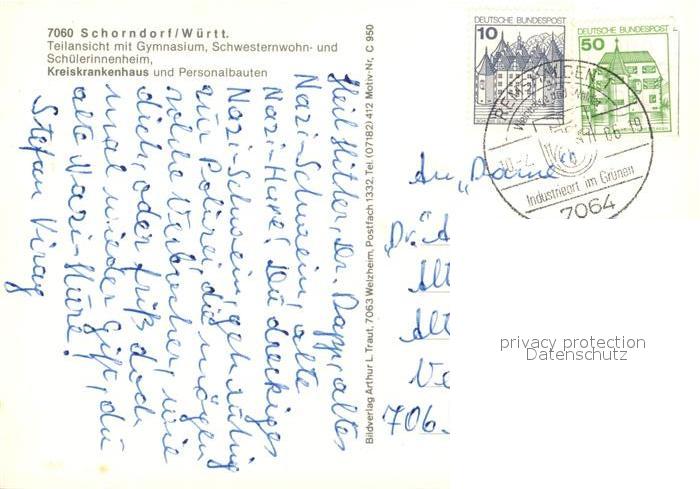 7060 Schorndorf/Württ.
Teilansicht mit Gymnasium, Schwesternwohn- und
Schülerinnenheim,
Kreiskrankenhaus und Personalbauten
Heil Hitler, Dr. Dapp, altes
Nazi-Schwein, alte
Nazi-Hure! Du dreckiges
Nazi-Schwein, geh ruhig
zur Polizei, die mögen
solche Verbrecher, wie
dich, oder friß doch
mal wieder Gift, du
alte Nazi-Hure!
Stefan
Bildverlag Arthur L. Traut, 7063 Welzheim, Postfach 1332, Tel. (07182) 412 Motiv-Nr. C 950
DEUTSCHE BUNDESPOST
10
DEUTSCHE BUNDESPOST
50
REMSHALDEN
Industrieort im Grünen
7064
An „Dame“
Dr. A
Alt
Alt
706.
privacy protection
Datenschutz